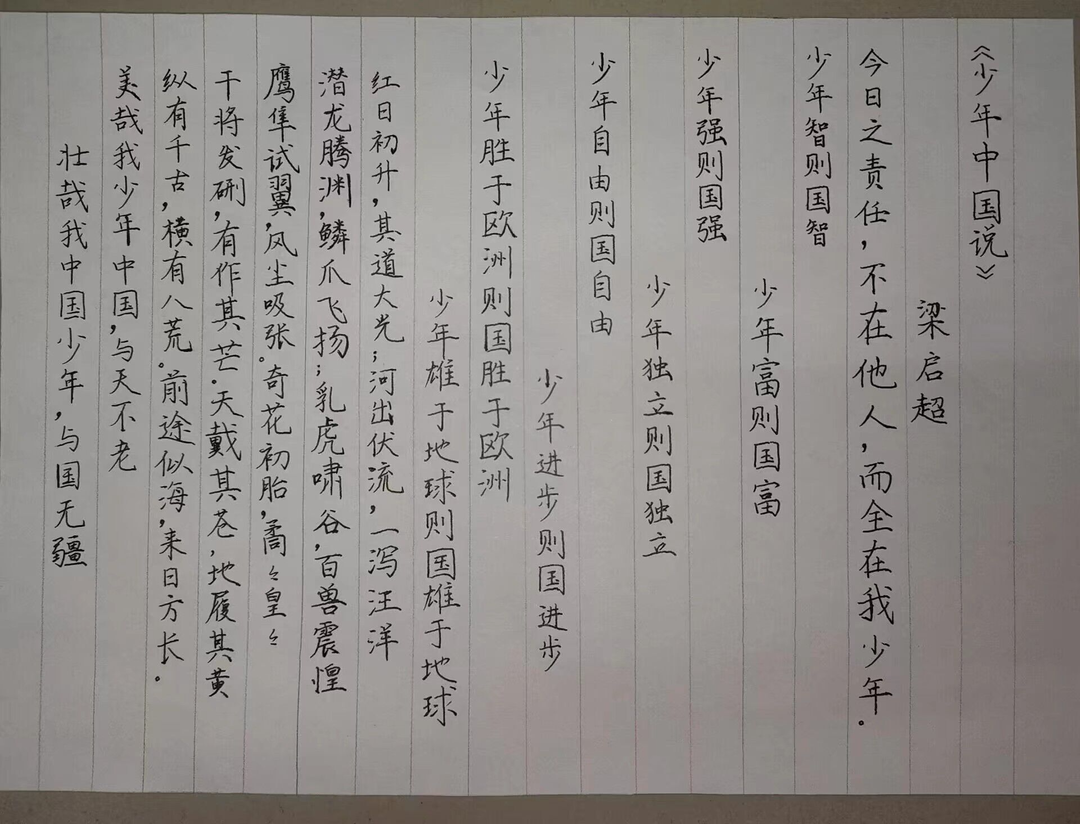 《少年中国说》
梁启超
今日之责任,不在他人,而全在我少年。
少年智则国智
少年富则国富
少年强则国强
少年独立则国独立
少年自由则国自由
少年进步则国进步
少年胜于欧洲则国胜于欧洲
少年雄于地球则国雄于地球
红日初升,其道大光;河出伏流,一泻汪洋
潜龙腾渊,鳞爪飞扬;乳虎啸谷,百兽震惶
鹰隼试翼,风尘吸张。奇花初胎,矞々皇々
干将发硎,有作其芒.天戴其苍,地履其黄
纵有千古,横有八荒。前途似海,来日方长。
美哉我少年中国,与天不老
壮哉我中国少年,与国无疆